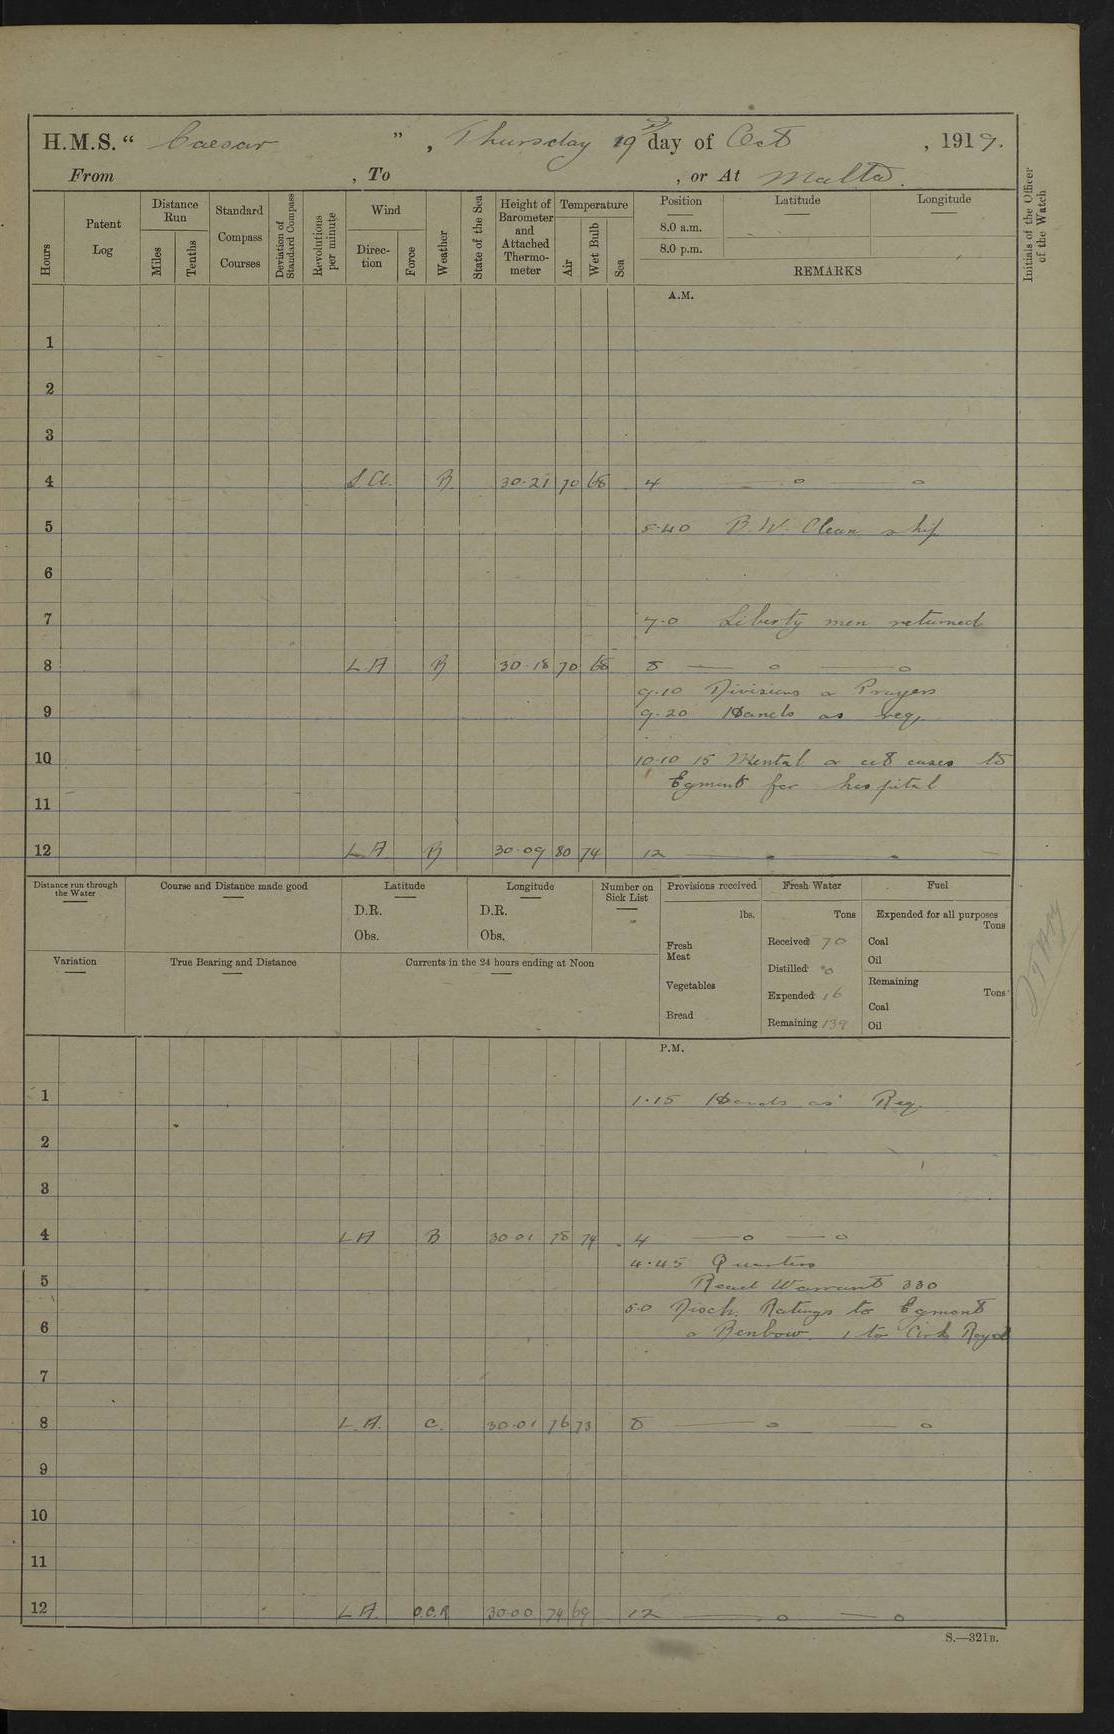 H.M.S. " Caesar ", Thursday day of Oct, 1919.
From , To , or At Malta.
Hours
Patent Log
Distance Run
Miles
Tenths
Standard Compass Courses
Deviation of Standard Compass
Revolutions per minute
Wind
Direction
Force
Weather
State of the Sea
Height of Barometer and Attached Thermometer
Temperature
Air
Wet Bulb
Sea
Position
Latitude
Longitude
8.0 a.m.
8.0 p.m.
REMARKS
Initials of the Officer of the Watch
A.M.
1
2
3
4 B 30.21 70 68 4 — o — o
5 5.40 B.W. Clean ship
6
7 7.0 Liberty men returned
8 L.A B 30.18 70 68 8 — o — o
9.10 Divisions & Prayers
9 9.20 Hands as req.
10 10.10 15 Mental & cot cases to
Egmont for hospital
11
12 L.A B 30.09 80 74 12 — o — o
Distance run through the Water
Course and Distance made good
Latitude
D.R.
Obs.
Longitude
D.R.
Obs.
Number on Sick List
Variation
True Bearing and Distance
Currents in the 24 hours ending at Noon
Provisions received
lbs.
Fresh Meat
Vegetables
Bread
Fresh Water
Tons
Received 70
Distilled 0
Expended 16
Remaining 139
Fuel
Expended for all purposes
Tons
Coal
Oil
Remaining
Tons
Coal
Oil
P.M.
1 1.15 Hands as Req.
2
3
4 L.A B 30.01 78 74 4 — o — o
4.45 Quarters
5 Read Warrant 330
5.0 Disch. Ratings to Egmont
6 & Benbow. 1 to Ark Royal
7
8 L.A. C. 30.01 76 73 8 — o — o
9
10
11
12 L.A. O.C.R 30.00 74 69 12 — o — o
S.—321B.